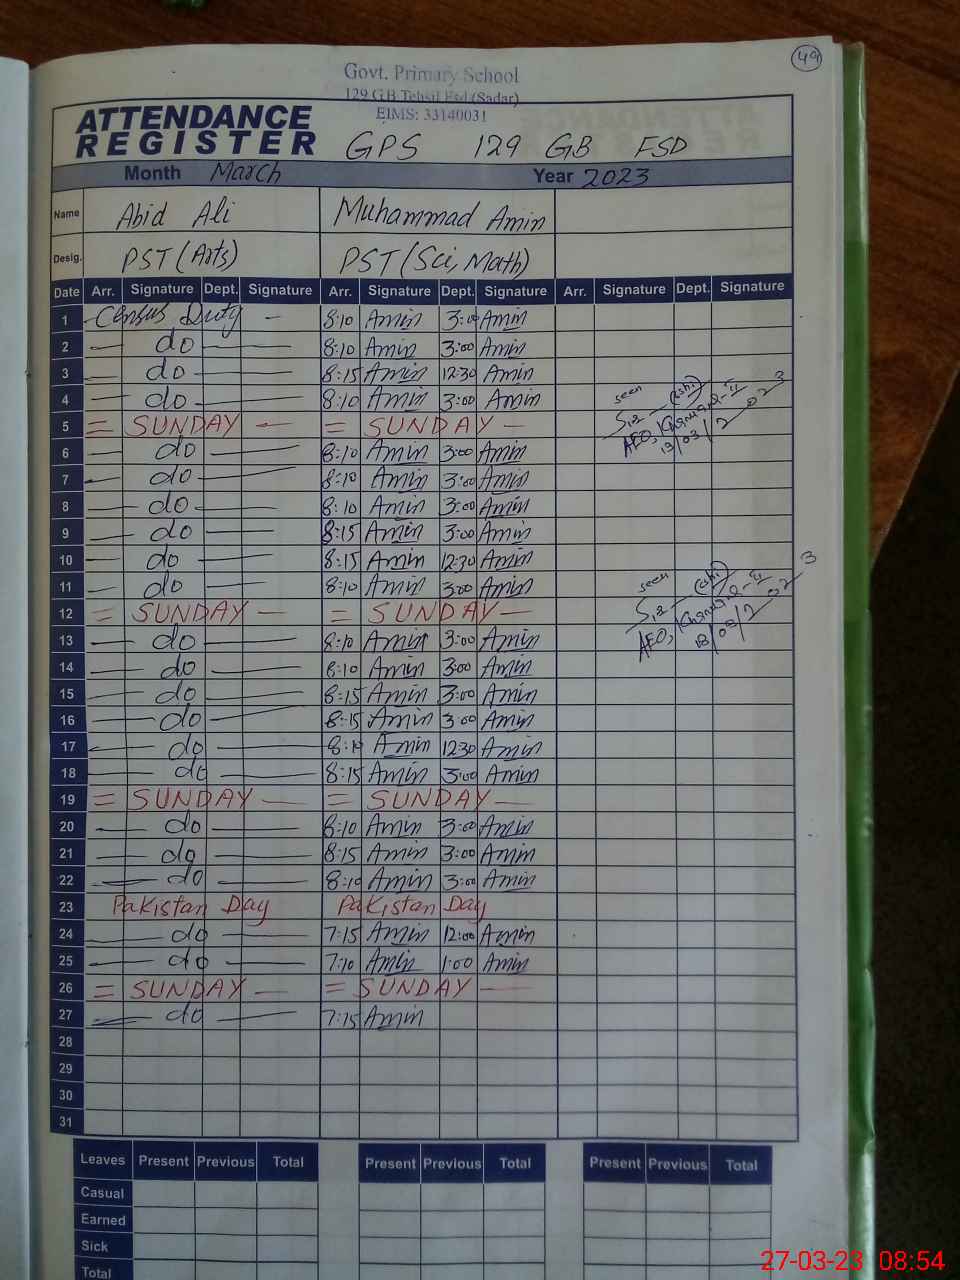 49
Govt. Primary School
129 G.B Tehsil Fsd (Sadar)
EIMS: 33140031
ATTENDANCE
REGISTER GPS 129 GB FSD
Month March Year 2023
Name Abid Ali Muhammad Amin
Desig. PST (Arts) PST (Sci, Math)
Date Arr. Signature Dept. Signature Arr. Signature Dept. Signature Arr. Signature Dept. Signature
1 Census Duty 8:10 Amin 3:00 Amin
2 do 8:10 Amin 3:00 Amin
3 do 8:15 Amin 12:30 Amin
4 do 8:10 Amin 3:00 Amin
seen
5 = SUNDAY — = SUNDAY —
AEO,
6 do 8:10 Amin 3:00 Amin
7 do 8:10 Amin 3:00 Amin
8 do 8:10 Amin 3:00 Amin
9 do 8:15 Amin 3:00 Amin
10 do 8:15 Amin 12:30 Amin
11 do 8:10 Amin 3:00 Amin
seen
12 = SUNDAY — = SUNDAY —
AEO,
13 do 8:10 Amin 3:00 Amin
14 do 8:10 Amin 3:00 Amin
15 do 8:15 Amin 3:00 Amin
16 do 8:15 Amin 3:00 Amin
17 do 8:10 Amin 12:30 Amin
18 do 8:15 Amin 3:00 Amin
19 = SUNDAY — = SUNDAY —
20 do 8:10 Amin 3:00 Amin
21 do 8:15 Amin 3:00 Amin
22 do 8:10 Amin 3:00 Amin
23 Pakistan Day Pakistan Day
24 do 7:15 Amin 12:00 Amin
25 do 7:10 Amin 1:00 Amin
26 = SUNDAY — = SUNDAY —
27 do 7:15 Amin
28
29
30
31
Leaves Present Previous Total Present Previous Total Present Previous Total
Casual
Earned
Sick
Total
27-03-23 08:54